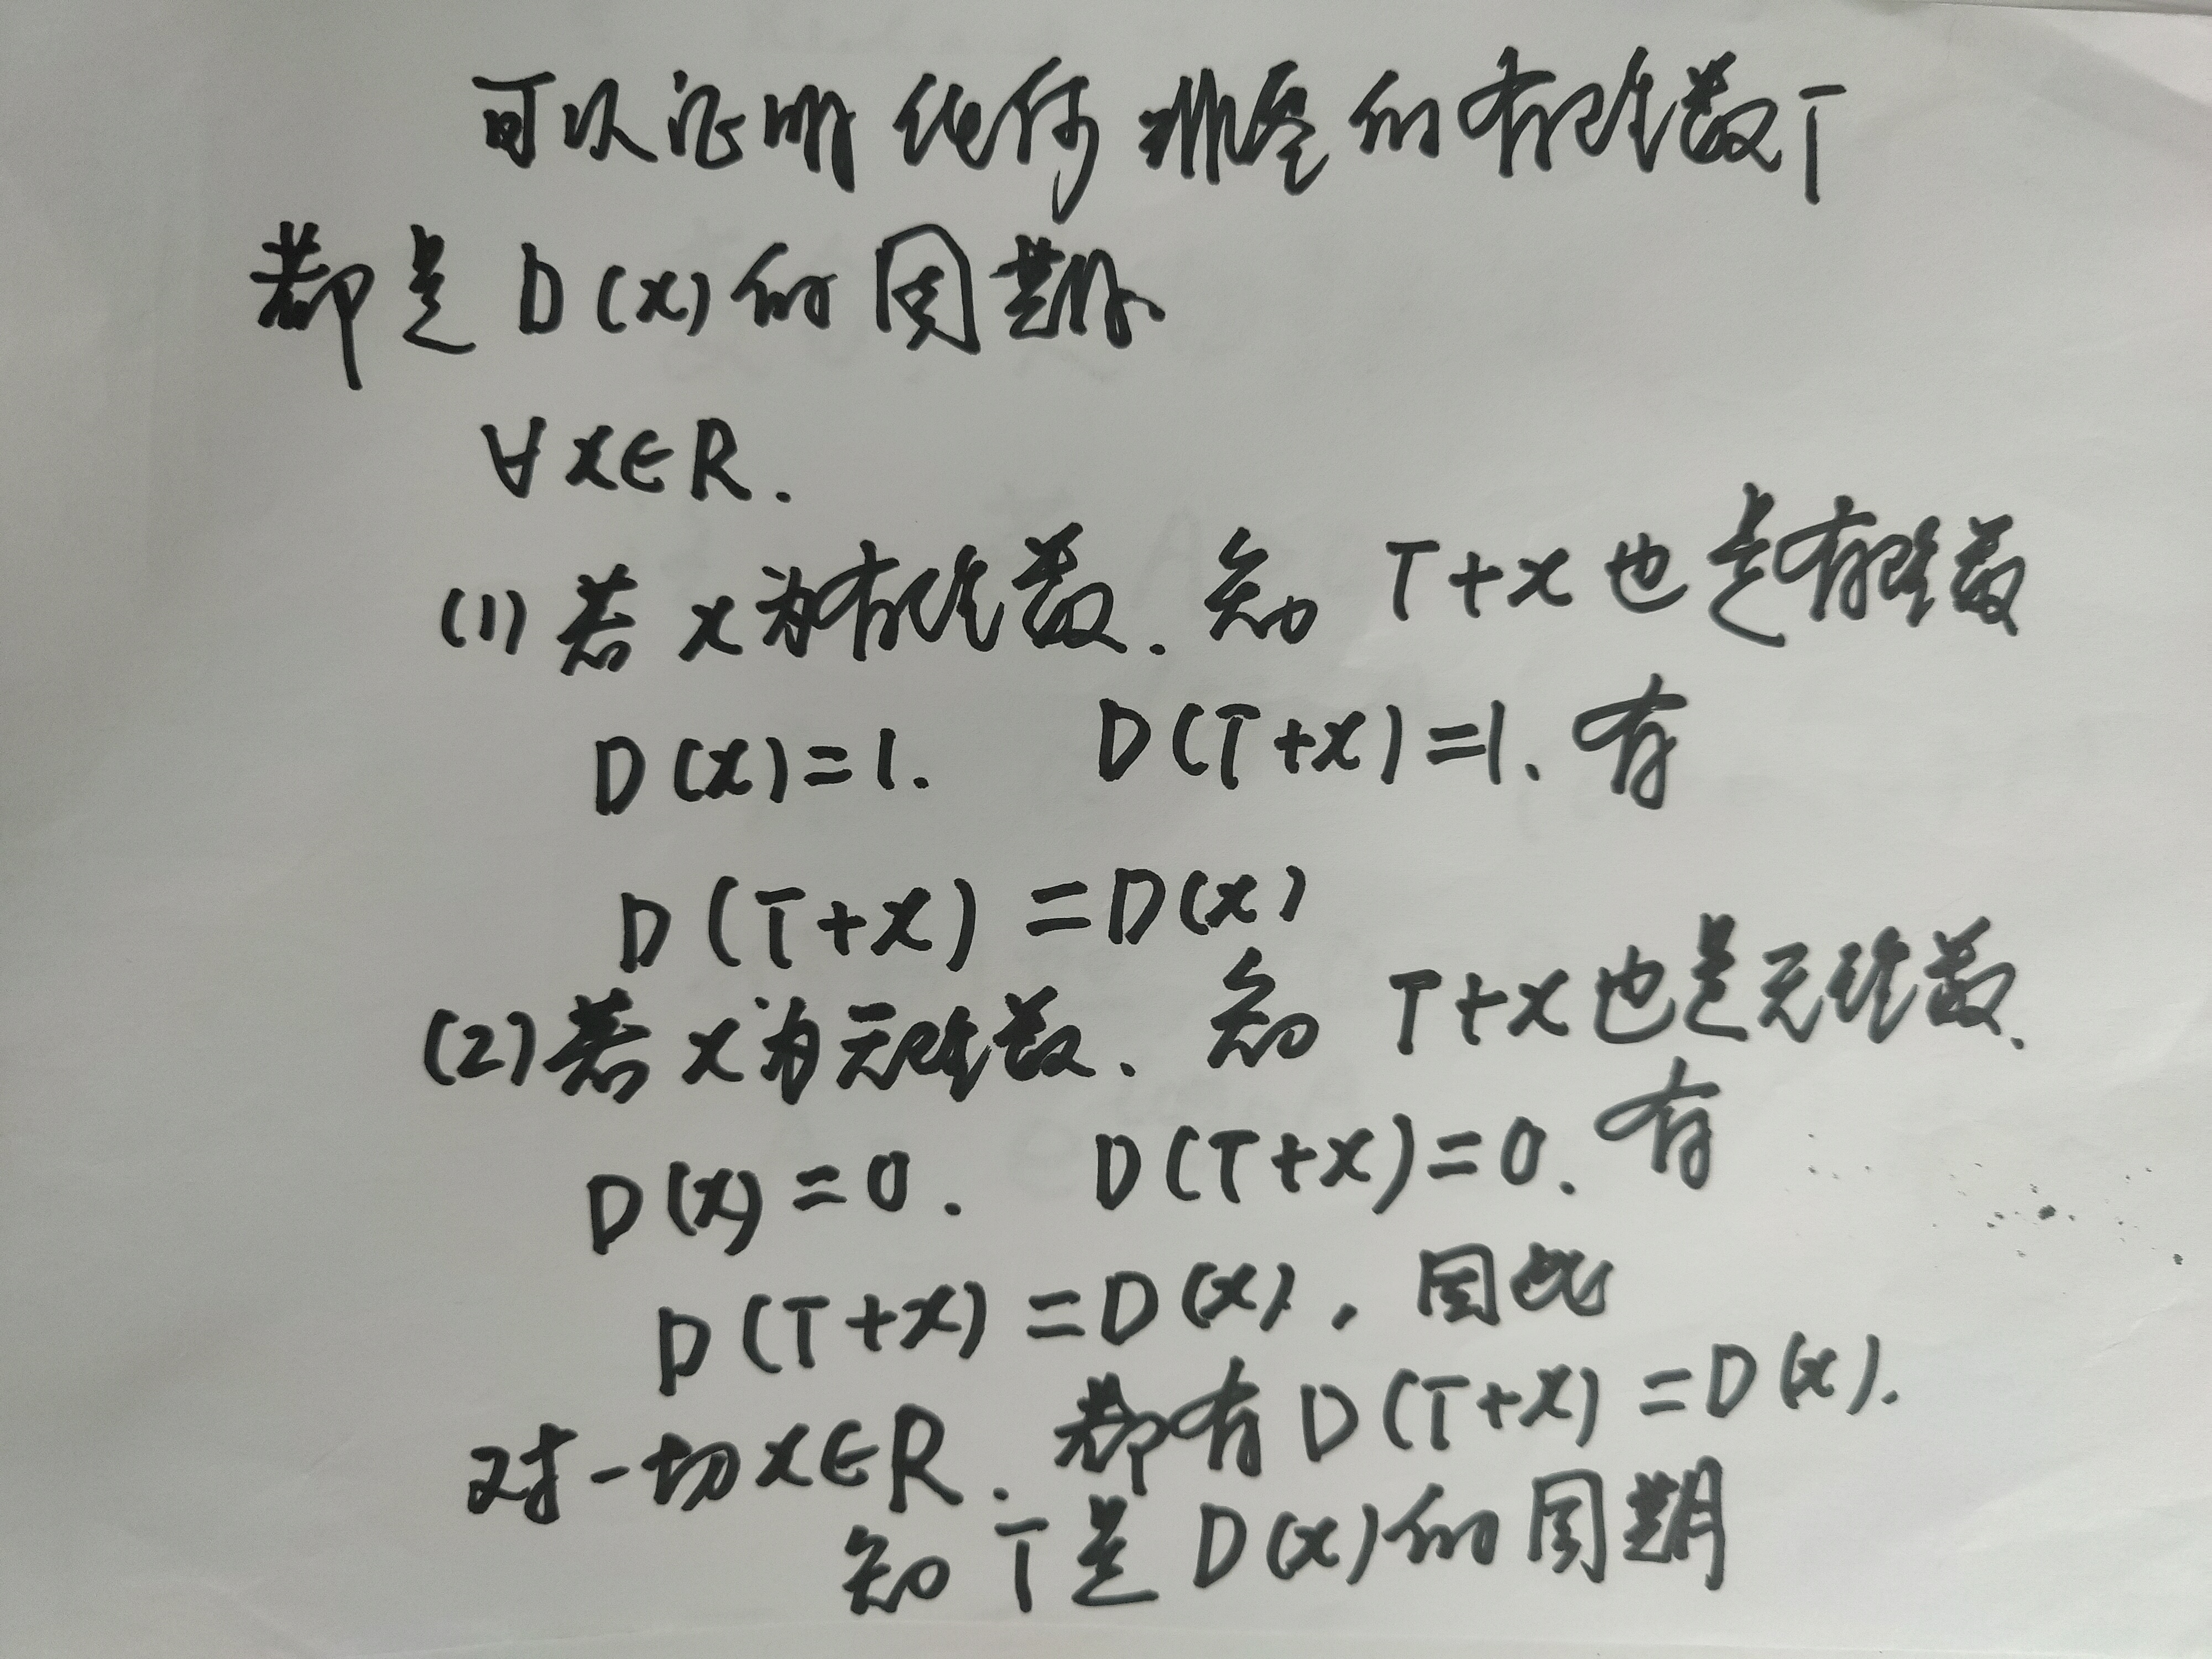 可以证明任何非零的有理数T
都是D(x)的周期
∀x∈R.
(1)若x为有理数.知 T+x也是有理数
D(x)=1. D(T+x)=1.有
D(T+x)=D(x)
(2)若x为无理数.知 T+x也是无理数.
D(x)=0. D(T+x)=0.有
D(T+x)=D(x),因此
对一切x∈R.都有D(T+x)=D(x).
知T是D(x)的周期